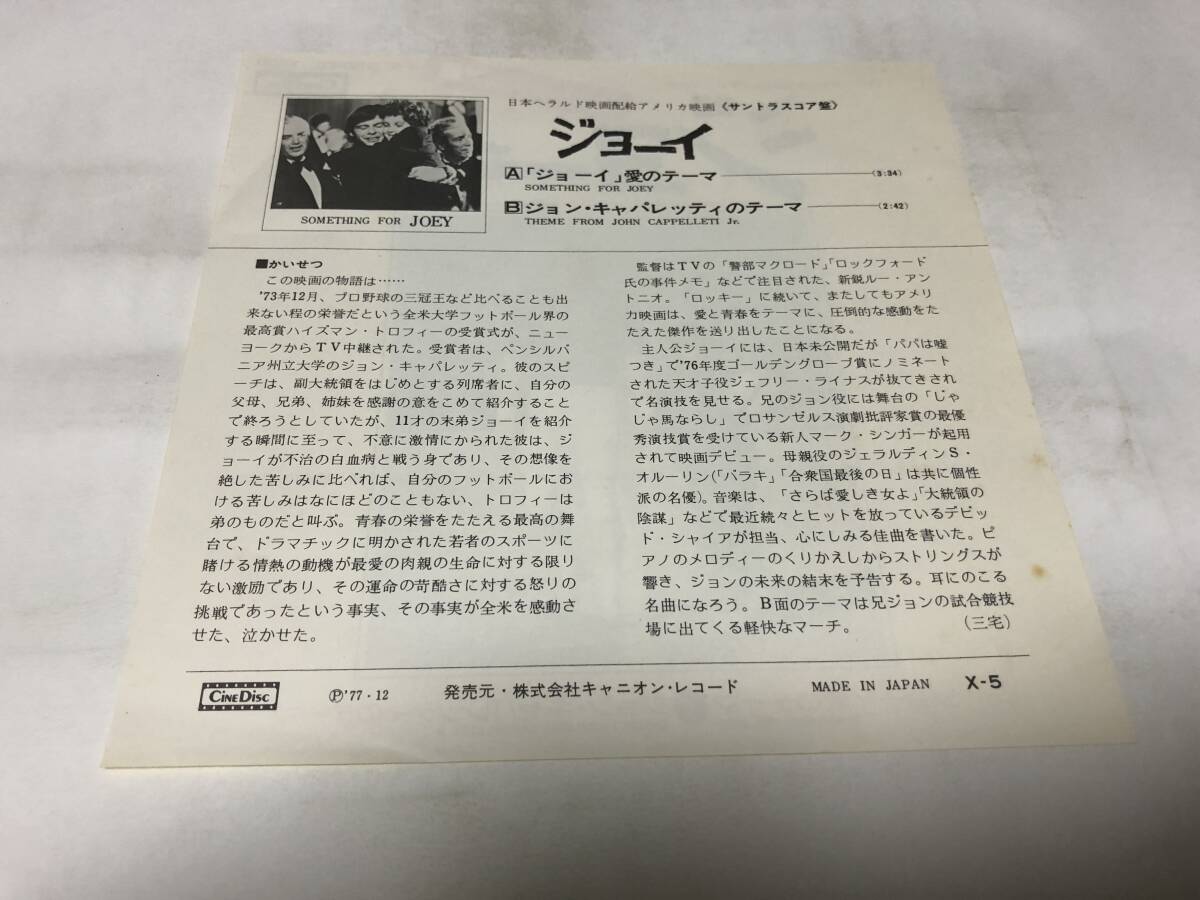 日本ヘラルド映画配給アメリカ映画《サントラスコア盤》
ジョーイ
A「ジョーイ」愛のテーマ (3:34)
SOMETHING FOR JOEY
Bジョン・キャパレッティのテーマ (2:42)
THEME FROM JOHN CAPPELLETI Jr.
SOMETHING FOR JOEY
■かいせつ
この映画の物語は……
'73年12月、プロ野球の三冠王など比べることも出
来ない程の栄誉だという全米大学フットボール界の
最高賞ハイズマン・トロフィーの受賞式が、ニュー
ヨークからTV中継された。受賞者は、ペンシルバ
ニア州立大学のジョン・キャパレッティ。彼のスピ
ーチは、副大統領をはじめとする列席者に、自分の
父母、兄弟、姉妹を感謝の意をこめて紹介すること
で終ろうとしていたが、11才の末弟ジョーイを紹介
する瞬間に至って、不意に激情にかられた彼は、ジ
ョーイが不治の白血病と戦う身であり、その想像を
絶した苦しみに比べれば、自分のフットボールにお
ける苦しみはなにほどのこともない、トロフィーは
弟のものだと叫ぶ。青春の栄誉をたたえる最高の舞
台で、ドラマチックに明かされた若者のスポーツに
賭ける情熱の動機が最愛の肉親の生命に対する限り
ない激励であり、その運命の苛酷さに対する怒りの
挑戦であったという事実、その事実が全米を感動さ
せた、泣かせた。
監督はTVの「警部マクロード」「ロックフォード
氏の事件メモ」などで注目された、新鋭ルー・アン
トニオ。「ロッキー」に続いて、またしてもアメリ
カ映画は、愛と青春をテーマに、圧倒的な感動をた
たえた傑作を送り出したことになる。
主人公ジョーイには、日本未公開だが「パパは嘘
つき」で'76年度ゴールデングローブ賞にノミネート
された天才子役ジェフリー・ライナスが抜てきされ
て名演技を見せる。兄のジョン役には舞台の「じゃ
じゃ馬ならし」でロサンゼルス演劇批評家賞の最優
秀演技賞を受けている新人マーク・シンガーが起用
されて映画デビュー。母親役のジェラルディンS・
オルーリン(「バラキ」「合衆国最後の日」は共に個性
派の名優)。音楽は、「さらば愛しき女よ」「大統領の
陰謀」などで最近続々とヒットを放っているデビッ
ド・シャイアが担当、心にしみる佳曲を書いた。ピ
アノのメロディーのくりかえしからストリングスが
響き、ジョンの未来の結末を予告する。耳にのこる
名曲になろう。B面のテーマは兄ジョンの試合競技
場に出てくる軽快なマーチ。 (三宅)
CINE DISC ℗'77・12 発売元・株式会社キャニオン・レコード MADE IN JAPAN X-5